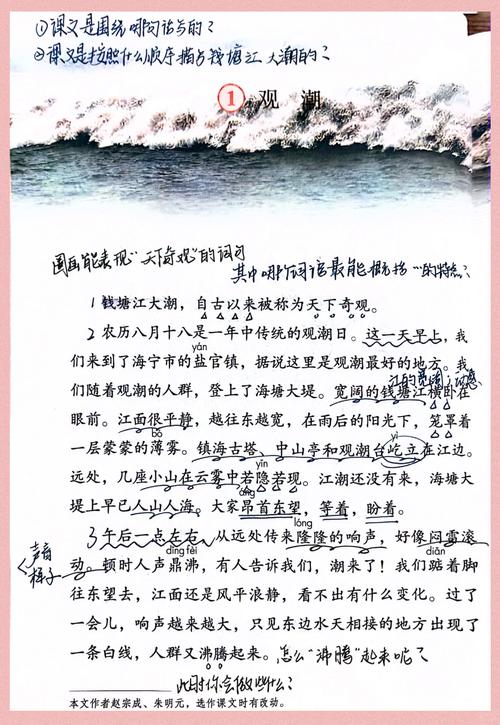 ①课文是围绕哪句话写的？
②课文是按照什么顺序描写钱塘江大潮的？
① 观 潮
圈画能表现“天下奇观”的词句
其中哪个词语最能概括“”的特点？
1 钱塘江大潮，自古以来被称为天下奇观。
2 农历八月十八是一年中传统的观潮日。这一天早上，我
yán
们来到了海宁市的盐官镇，据说这里是观潮最好的地方。我
们随着观潮的人群，登上了海塘大堤。宽阔的钱塘江横卧在
眼前。江面很平静，越往东越宽，在雨后的阳光下，笼罩着
yì
一层蒙蒙的薄雾。镇海古塔、中山亭和观潮台屹立在江边。
yǐn
远处，几座小山在云雾中若隐若现。江潮还没有来，海塘大
堤上早已人山人海。大家昂首东望，等着，盼着。
lóng
3 午后一点左右，从远处传来隆隆的响声，好像闷雷滚
声音
样子
dǐng fèi
diǎn
动。顿时人声鼎沸，有人告诉我们，潮来了！我们踮着脚
往东望去，江面还是风平浪静，看不出有什么变化。过了
一会儿，响声越来越大，只见东边水天相接的地方出现了
一条白线，人群又沸腾起来。怎么“沸腾”起来呢？
此时你会做些什么？
本文作者赵宗成、朱明元，选作课文时有改动。